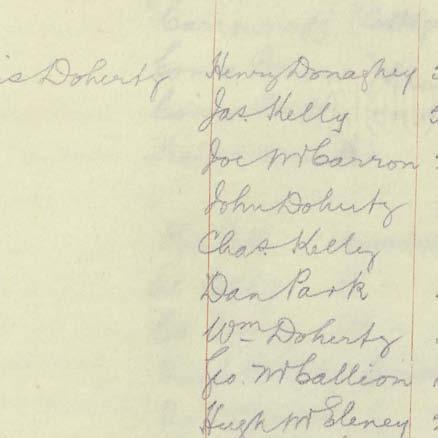 is Doherty Henry Donaghey
Jas. Kelly
Joe McCarron
John Doherty
Chas. Kelley
Dan Park
Wm Doherty
Geo. McCallion
Hugh McEleney